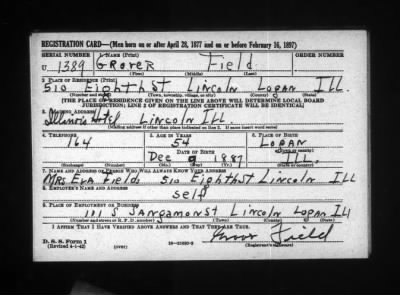 REGISTRATION CARD—(Men born on or after April 28, 1877 and on or before February 16, 1897)
SERIAL NUMBER 1. NAME (Print) ORDER NUMBER
U 1389 GROVER Field
(First) (Middle) (Last)
2. PLACE OF RESIDENCE (Print)
510 Eighth St Lincoln Logan Ill.
(Number and street) (Town, township, village, or city) (County) (State)
[THE PLACE OF RESIDENCE GIVEN ON THE LINE ABOVE WILL DETERMINE LOCAL BOARD
JURISDICTION; LINE 2 OF REGISTRATION CERTIFICATE WILL BE IDENTICAL]
3. MAILING ADDRESS
Illinois Hotel Lincoln Ill.
[Mailing address if other than place indicated on line 2. If same insert word same]
4. TELEPHONE 5. AGE IN YEARS 6. PLACE OF BIRTH
164 54 Logan
DATE OF BIRTH (Town or county)
Dec 9 1887 Ill.
(Mo.) (Day) (Yr.) (State or country)
7. NAME AND ADDRESS OF PERSON WHO WILL ALWAYS KNOW YOUR ADDRESS
Mrs Eva Fields 510 Eighth St Lincoln Ill
8. EMPLOYER'S NAME AND ADDRESS
self
9. PLACE OF EMPLOYMENT OR BUSINESS
111 S Sangamon St Lincoln Logan Ill
(Number and street or R. F. D. number) (Town) (County) (State)
I AFFIRM THAT I HAVE VERIFIED ABOVE ANSWERS AND THAT THEY ARE TRUE.
D. S. S. Form 1 Grover Field
(Revised 4-1-42) (over) (Registrant's signature)